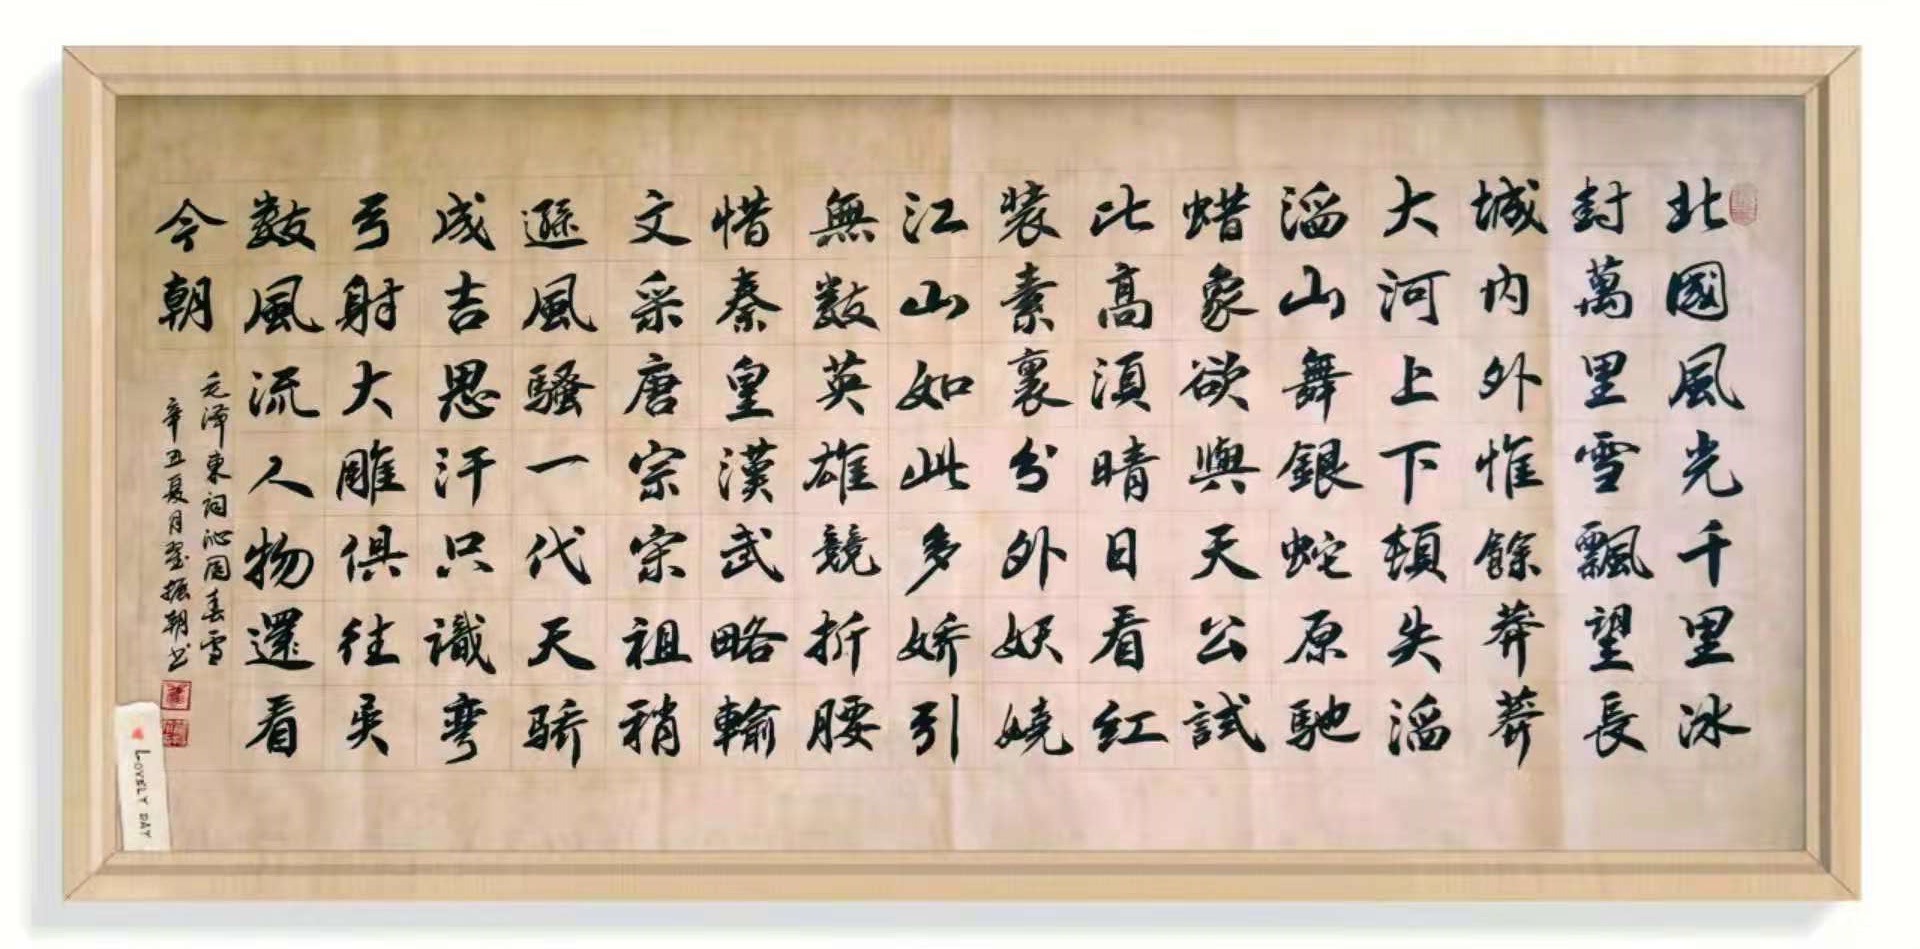 北國風光千里冰
封萬里雪飄望長
城内外惟餘莽莽
大河上下頓失滔
滔山舞銀蛇原馳
蜡象欲與天公試
比高須晴日看紅
装素裹分外妖嬈
江山如此多娇引
無數英雄競折腰
惜秦皇漢武略輸
文采唐宗宗祖稍
遜風騷一代天骄
成吉思汗只識彎
弓射大雕俱往矣
數風流人物還看
今朝
毛泽東词沁园春雪
辛丑夏月振朝书
LOVELY DAY